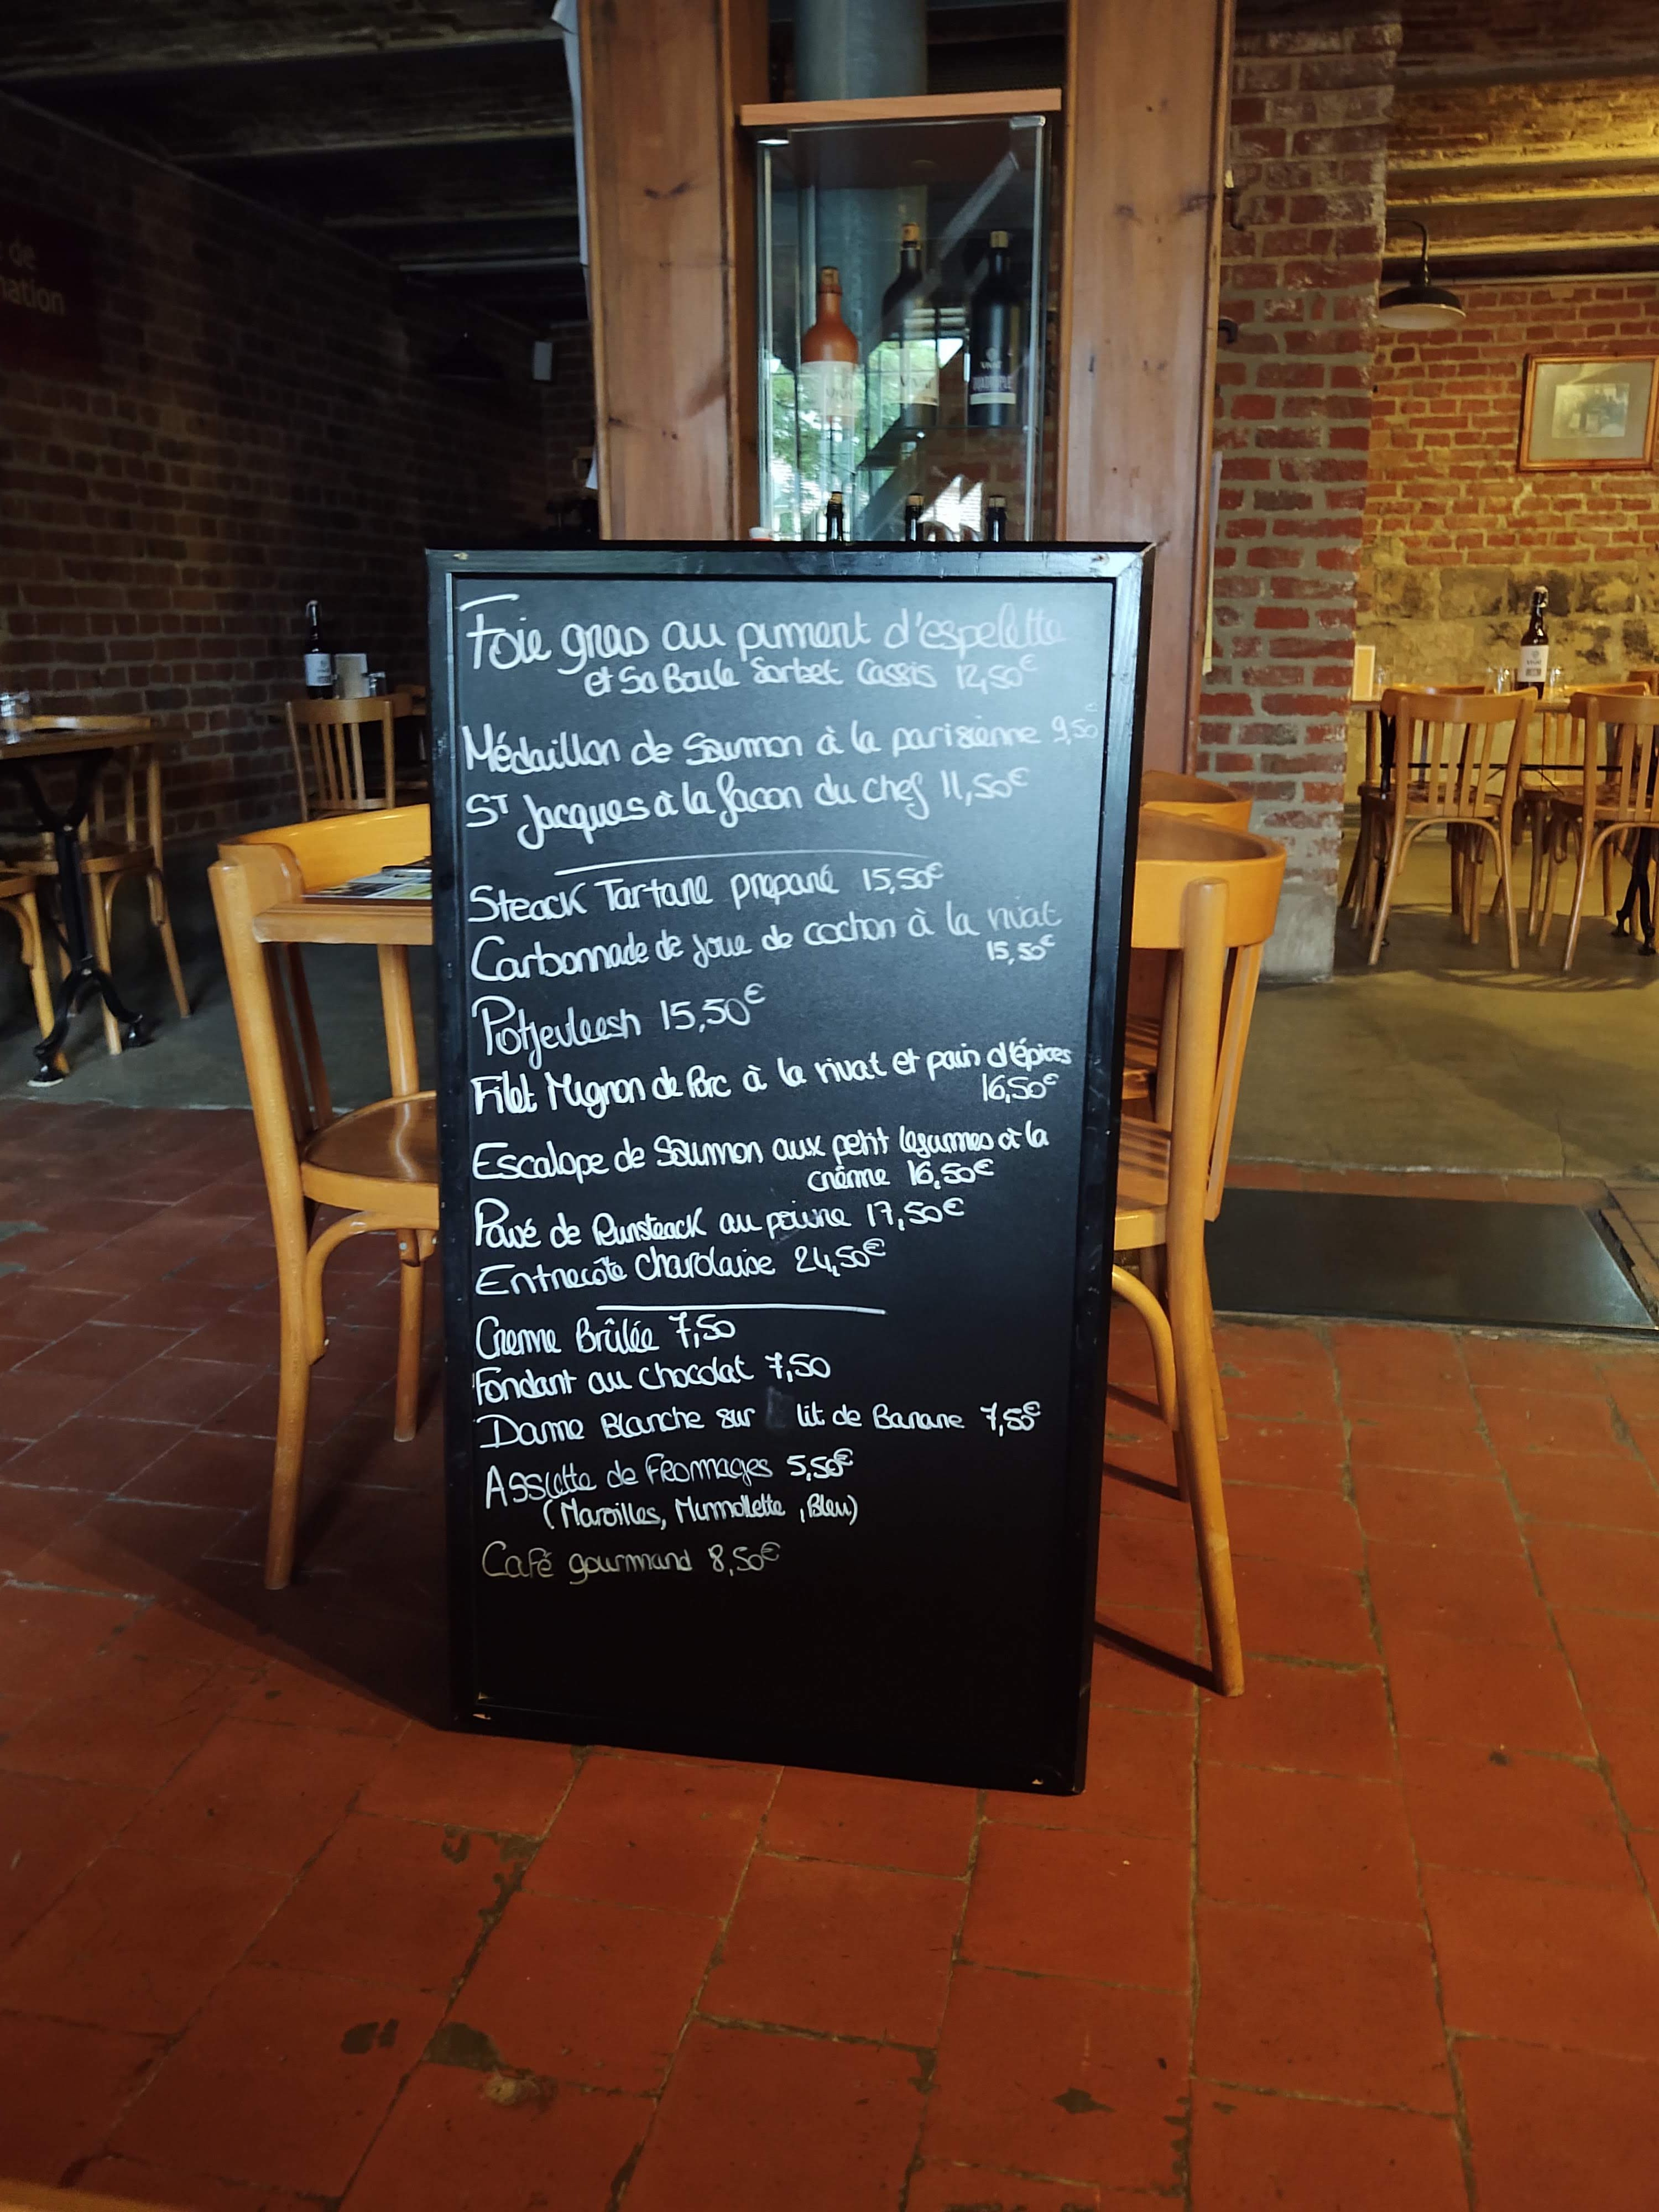 de
nation
VIVAT
QUADRUPLE
Foie gras au piment d'espelette
et Sa Boule Sorbet Cassis 12,50€
Médaillon de Saumon à la parisienne 9,50€
ST Jacques à la facon du chef 11,50€
Steack Tartare préparé 15,50€
Carbonnade de joue de cochon à la vivat
15,50€
Potjevleesh 15,50€
Filet Mignon de Porc à la vivat et pain d'épices
16,50€
Escalope de Saumon aux petit légumes à la
crème 16,50€
Pavé de Rumsteack au poivre 17,50€
Entrecôte Charolaise 24,50€
Creme Brûlée 7,50
Fondant au chocolat 7,50
Dame Blanche sur lit de Banane 7,50€
Assiette de Fromages 5,50€
(Maroilles, Mimollette, Bleu)
Café gourmand 8,50€